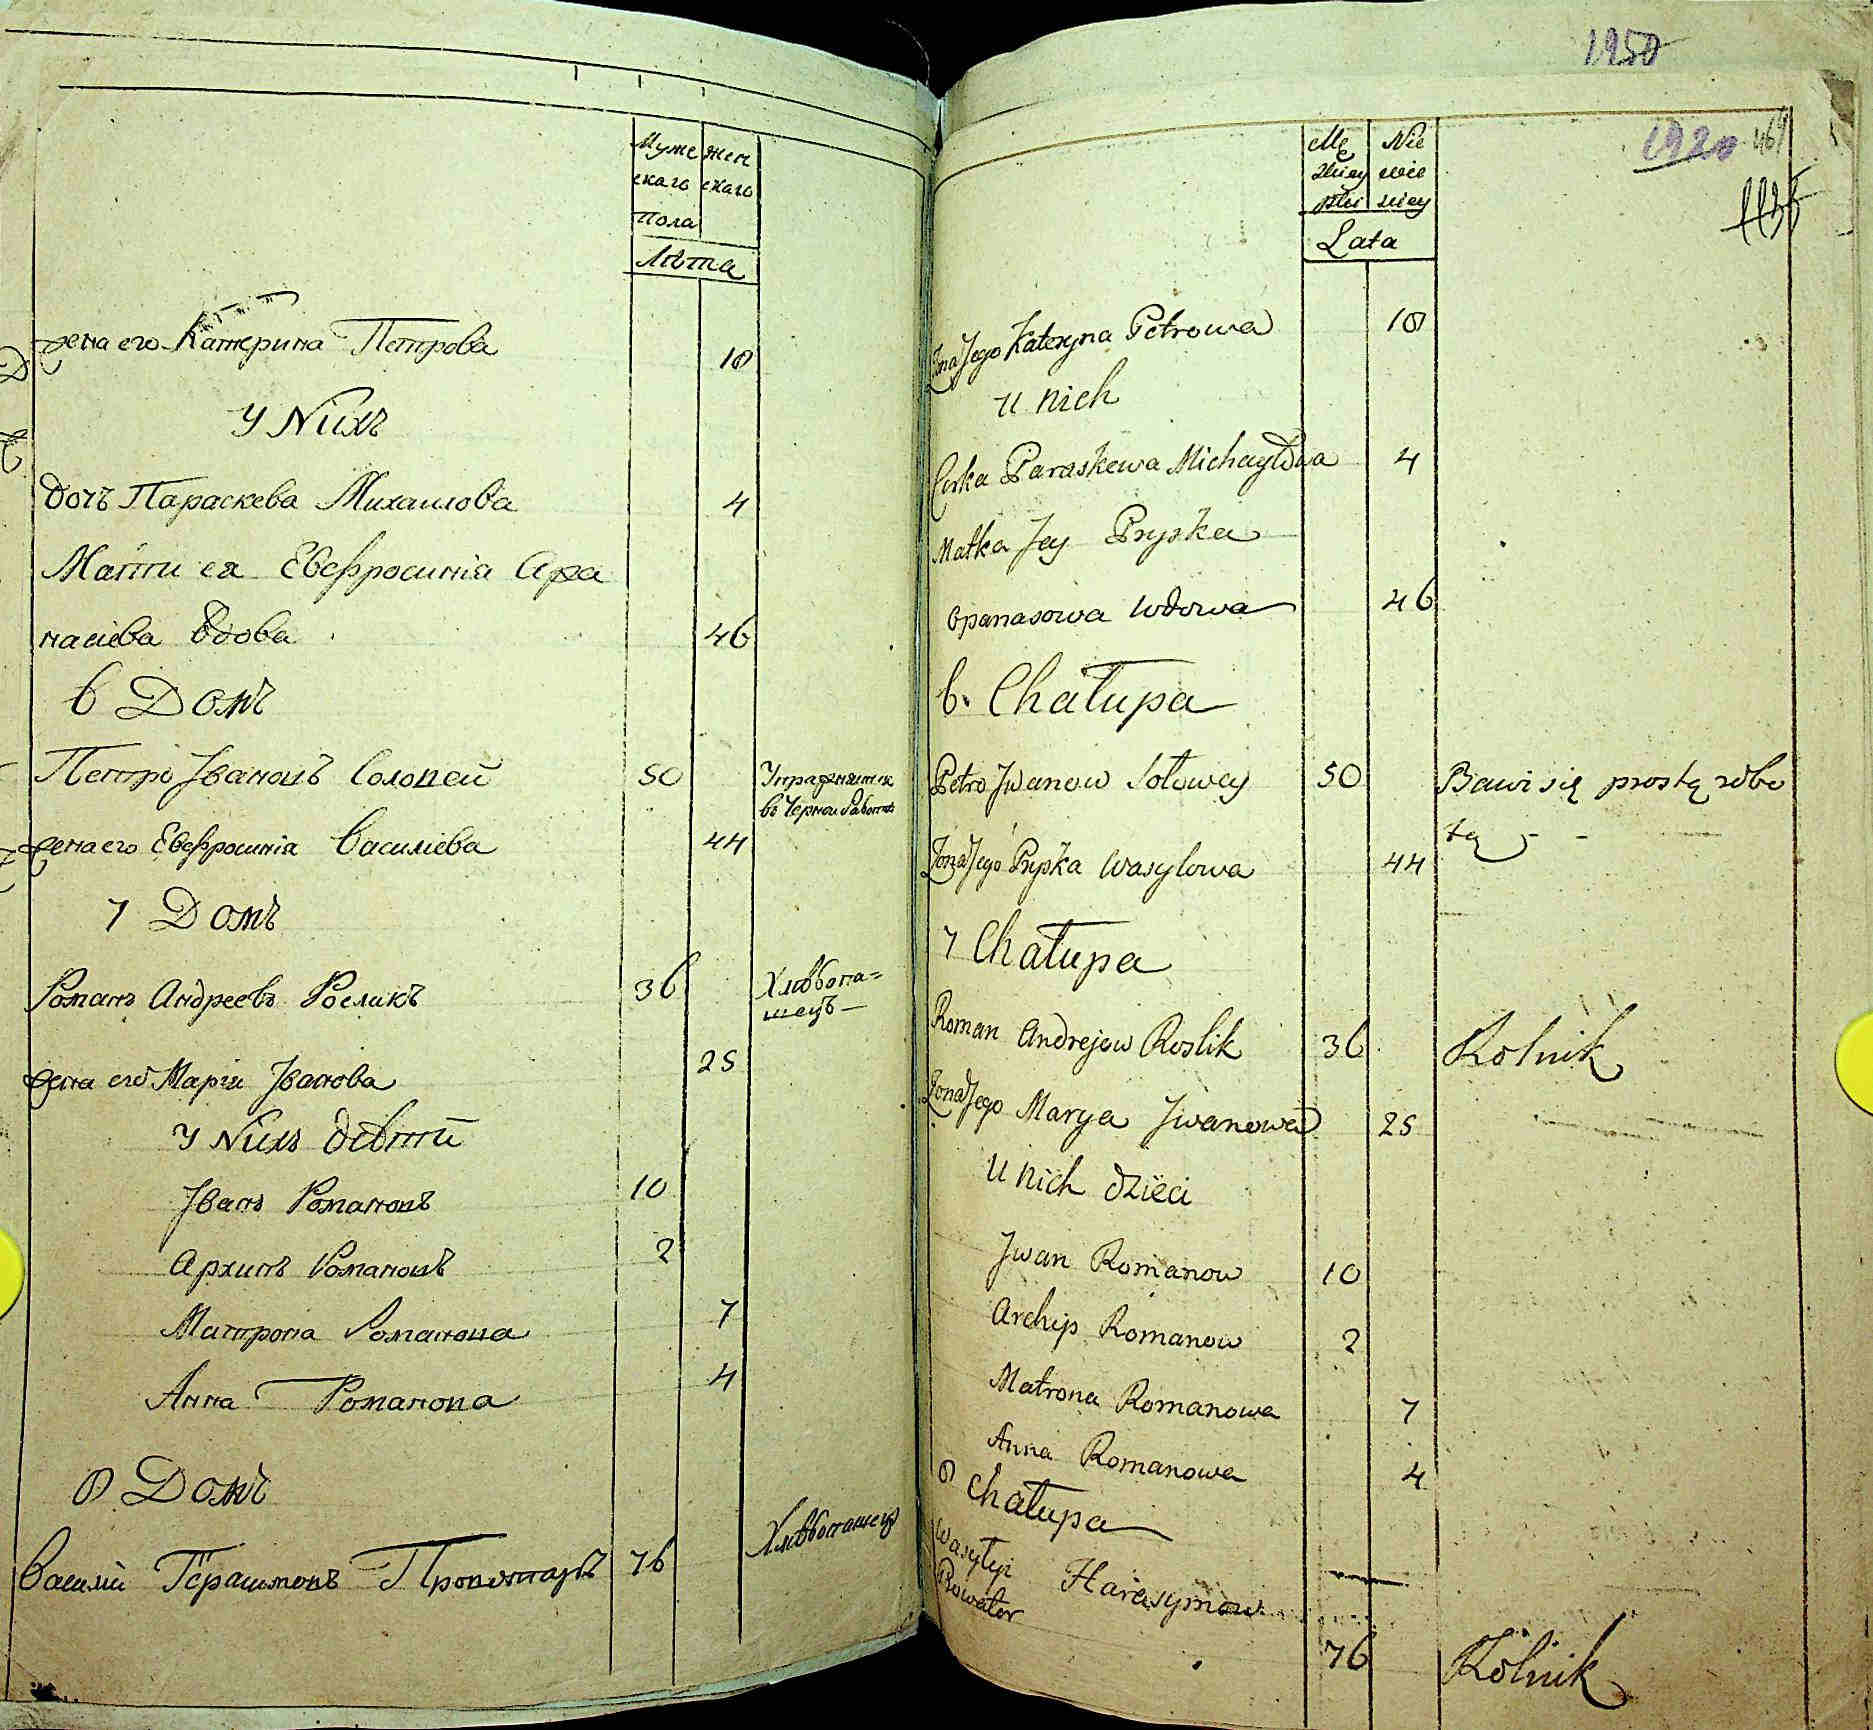 Муже жен
скаго скаго
пола
Лѣта
жена его Катерина Петрова 18
У Nихъ
дочь Параскева Михаилова 4
Мати ея Евфросинiа Афа
насiева вдова 46
6 Домъ
Петро Jвановъ Соловей 50 Упражняется
въ Черной Работѣ
жена его Евфросинiа Василiева 44
7 Домъ
Романъ Андреевъ Росликъ 36 Хлѣбопа=
шецъ
жена его Марiя Jванова 25
У Nихъ дѣти
Jванъ Романовъ 10
Архипъ Романовъ 2
Матрона Романова 7
Анна Романова 4
8 Домъ
Василiй Герасимовъ 76 Хлѣбопашецъ
1950
1920 464
Mę Nie
zkiey wie
płci sciey
Lata
Żona Jego Kateryna Petrowa 18
u nich
Corka Paraskewa Michayłowa 4
Matka Jey Pryska
Opanasowa wdowa 46
6. Chałupa
Petro Jwanow Sołowey 50 Bawi się prostą robo
tą
Żona Jego Pryska Wasylowa 44
7 Chałupa
Roman Andrejow Roslik 36 Rolnik
Żona Jego Marya Jwanowa 25
U nich dzieci
Jwan Romanow 10
Archip Romanow 2
Matrona Romanowa 7
Anna Romanowa 4
8 Chałupa
Wasylyi Harasymow
76 Rolnik